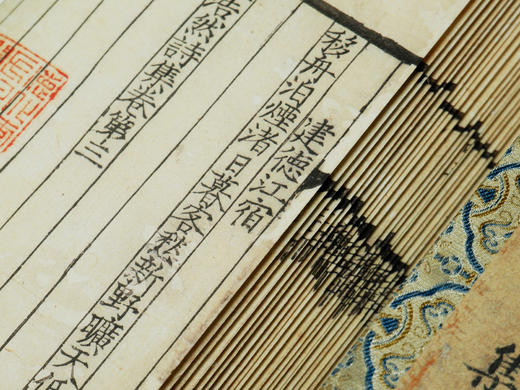 建德江宿
移舟泊煙渚日暮客愁新野曠天低
浩然詩集卷第三
集